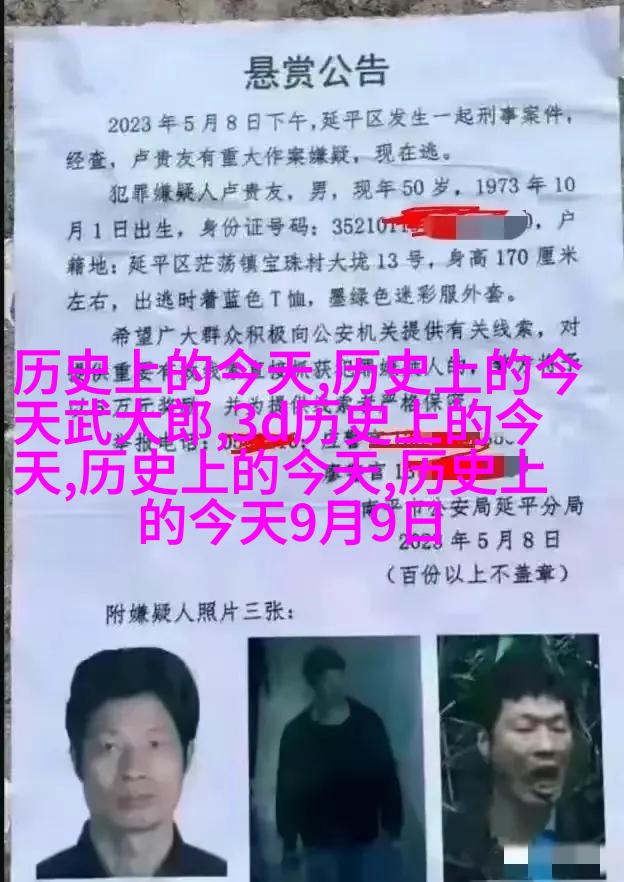 悬赏公告
2023年5月8日下午,延平区发生一起刑事案件,
经查,卢贵友有重大作案嫌疑,现在逃。
犯罪嫌疑人卢贵友,男,现年50岁,1973年10
月1日出生,身份证号码:3521011,户
籍地:延平区茫荡镇宝珠村大垅13号,身高170厘米
左右,出逃时着蓝色T恤,墨绿色迷彩服外套。
希望广大群众积极向公安机关提供有关线索,对
历史上的今天,历史上的今
天武大郎,3d历史上的今
天,历史上的今天,历史上
的今天9月9日
万元奖励,并为提供线索者严格保密。
举报电话:
南平市公安局延平分局
2023年5月8日
(百份以上不盖章)
附嫌疑人照片三张: